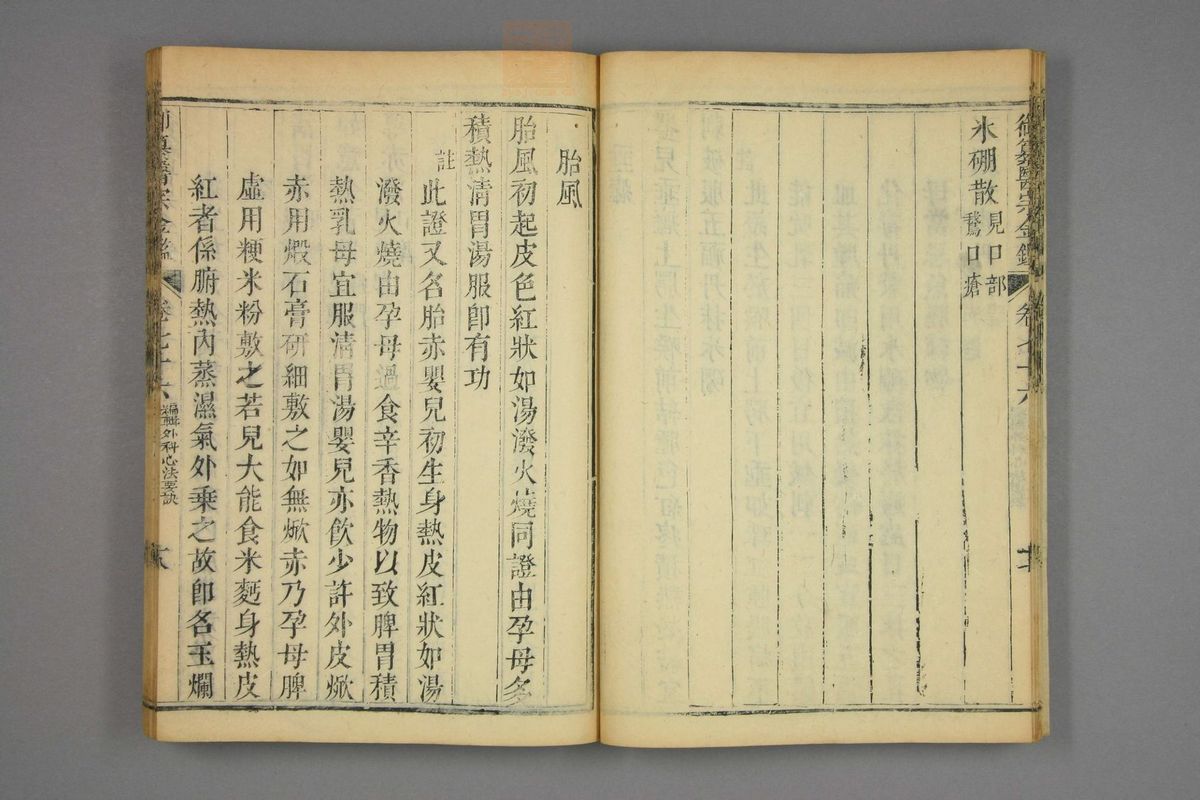 御纂醫宗金鑑 卷七十六
氷硼散見口部鵞口瘡
胎風
胎風初起皮色紅狀如湯潑火燒同證由孕母多
積熱淸胃湯服卽有功
註此證又名胎赤嬰兒初生身熱皮紅狀如湯
潑火燒由孕母過食辛香熱物以致脾胃積
熱乳母宜服淸胃湯嬰兒亦飮少許外皮焮
赤用煅石膏硏細敷之如無焮赤乃孕母脾
虛用粳米粉敷之若兒大能食米麪身熱皮
紅者係腑熱內蒸濕氣外乘之故卽名玉爛
卷七十六 編輯外科心法要訣